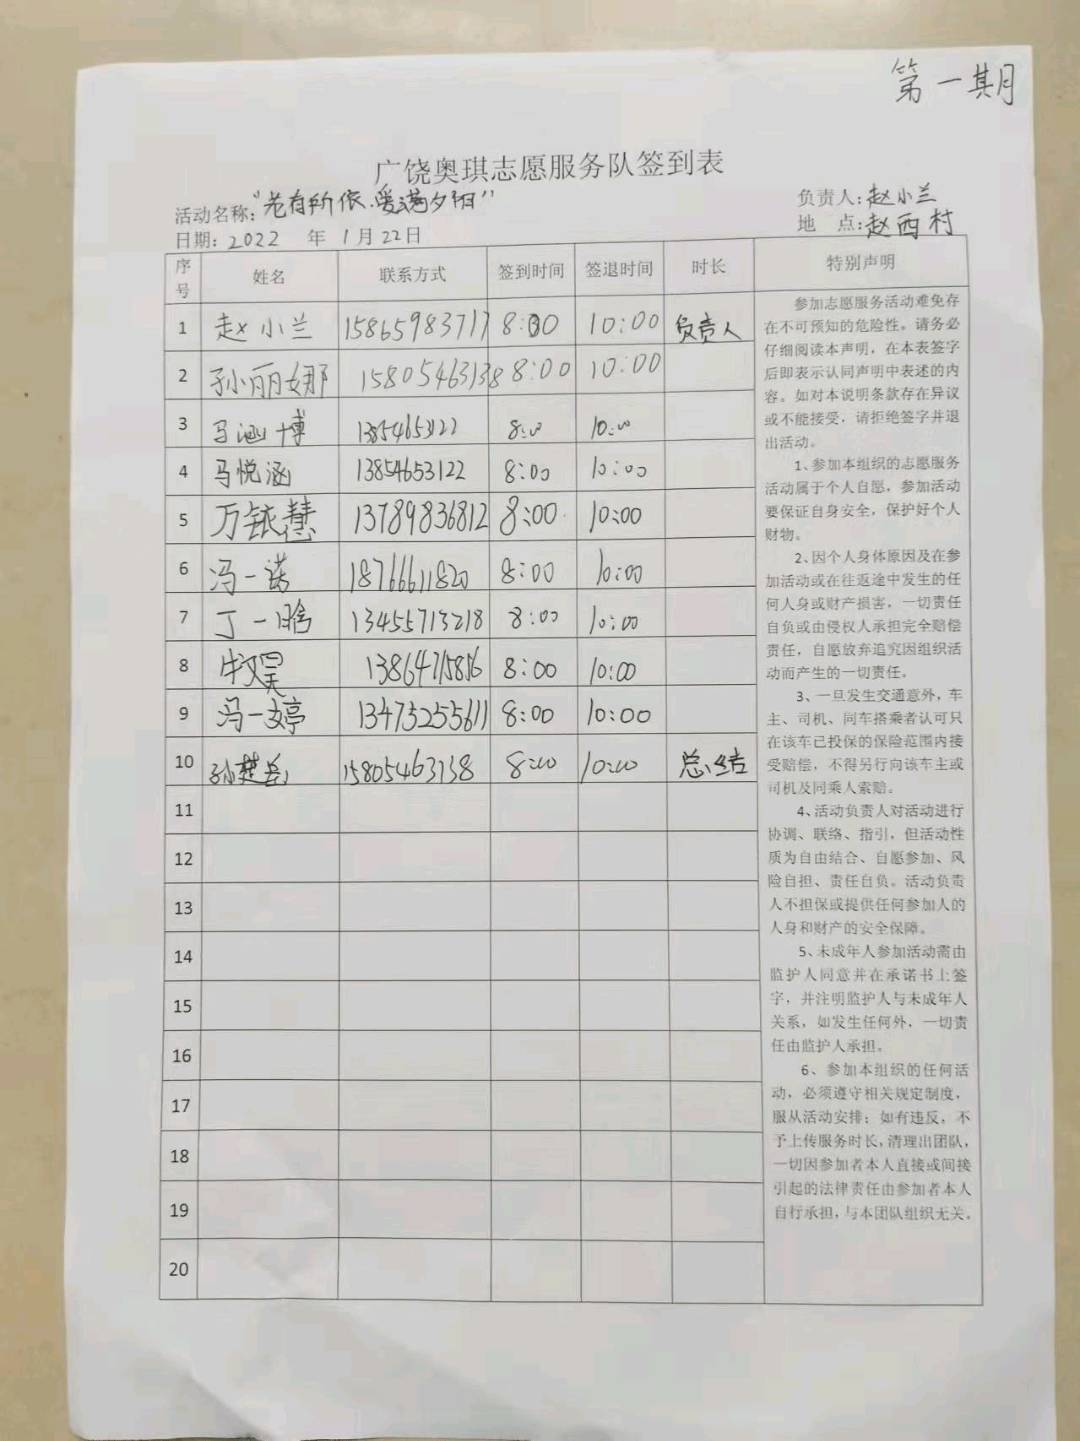 第一期
广饶奥琪志愿服务队签到表
活动名称:"老有所依.爱满夕阳"
负责人:赵小兰
日期:2022 年 1月22日
地 点:赵西村
序号 姓名 联系方式 签到时间 签退时间 时长 特别声明
1 赵小兰 15865983717 8:00 10:00 负责人
2 孙丽娜 15805463138 8:00 10:00
3 马涵博 13854653122 8:00 10:00
4 马悦涵 13854653122 8:00 10:00
5 万铱慧 13789836812 8:00 10:00
6 冯一诺 18766611820 8:00 10:00
7 丁一晗 13455713218 8:00 10:00
8 牛文昊 13864715856 8:00 10:00
9 冯一婷 13475255611 8:00 10:00
10 孙楚岳 15805463138 8:00 10:00 总结
11
12
13
14
15
16
17
18
19
20
参加志愿服务活动难免存
在不可预知的危险性。请务必
仔细阅读本声明，在本表签字
后即表示认同声明中表述的内
容。如对本说明条款存在异议
或不能接受，请拒绝签字并退
出活动。
1、参加本组织的志愿服务
活动属于个人自愿，参加活动
要保证自身安全，保护好个人
财物。
2、因个人身体原因及在参
加活动或在往返途中发生的任
何人身或财产损害，一切责任
自负或由侵权人承担完全赔偿
责任，自愿放弃追究因组织活
动而产生的一切责任。
3、一旦发生交通意外，车
主、司机、同车搭乘者认可只
在该车已投保的保险范围内接
受赔偿，不得另行向该车主或
司机及同乘人索赔。
4、活动负责人对活动进行
协调、联络、指引，但活动性
质为自由结合、自愿参加、风
险自担、责任自负。活动负责
人不担保或提供任何参加人的
人身和财产的安全保障。
5、未成年人参加活动需由
监护人同意并在承诺书上签
字，并注明监护人与未成年人
关系，如发生任何外，一切责
任由监护人承担。
6、参加本组织的任何活
动，必须遵守相关规定制度，
服从活动安排；如有违反，不
予上传服务时长，清理出团队，
一切因参加者本人直接或间接
引起的法律责任由参加者本人
自行承担，与本团队组织无关。